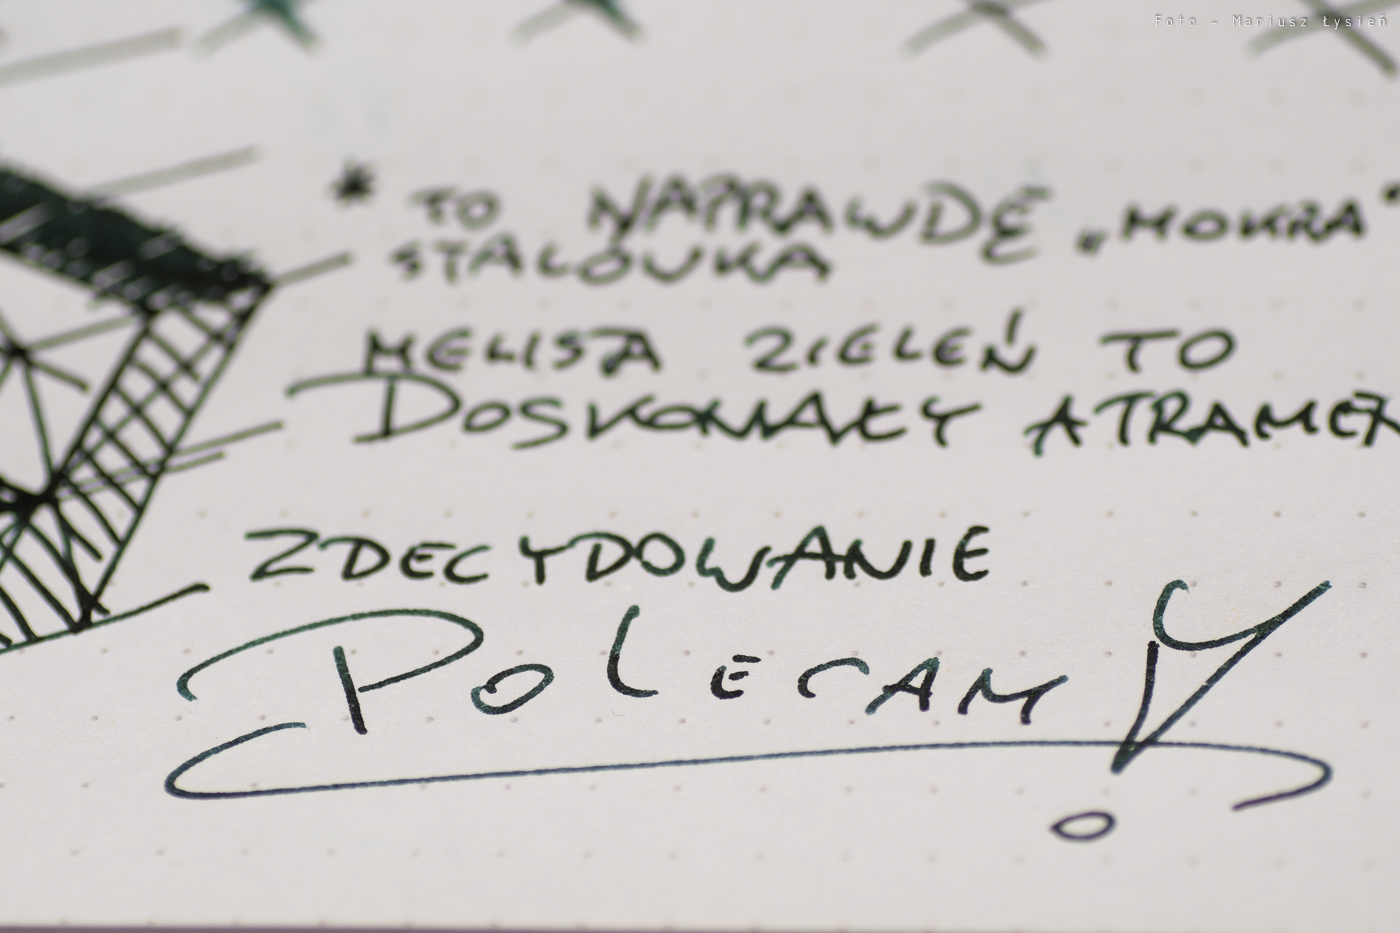 Foto - Mariusz Łysień
* TO NAPRAWDĘ „MOKRA"
STALÓWKA
MELISA ZIELEŃ TO
DOSKONAŁY ATRAMEN
ZDECYDOWANIE
POLECAM!